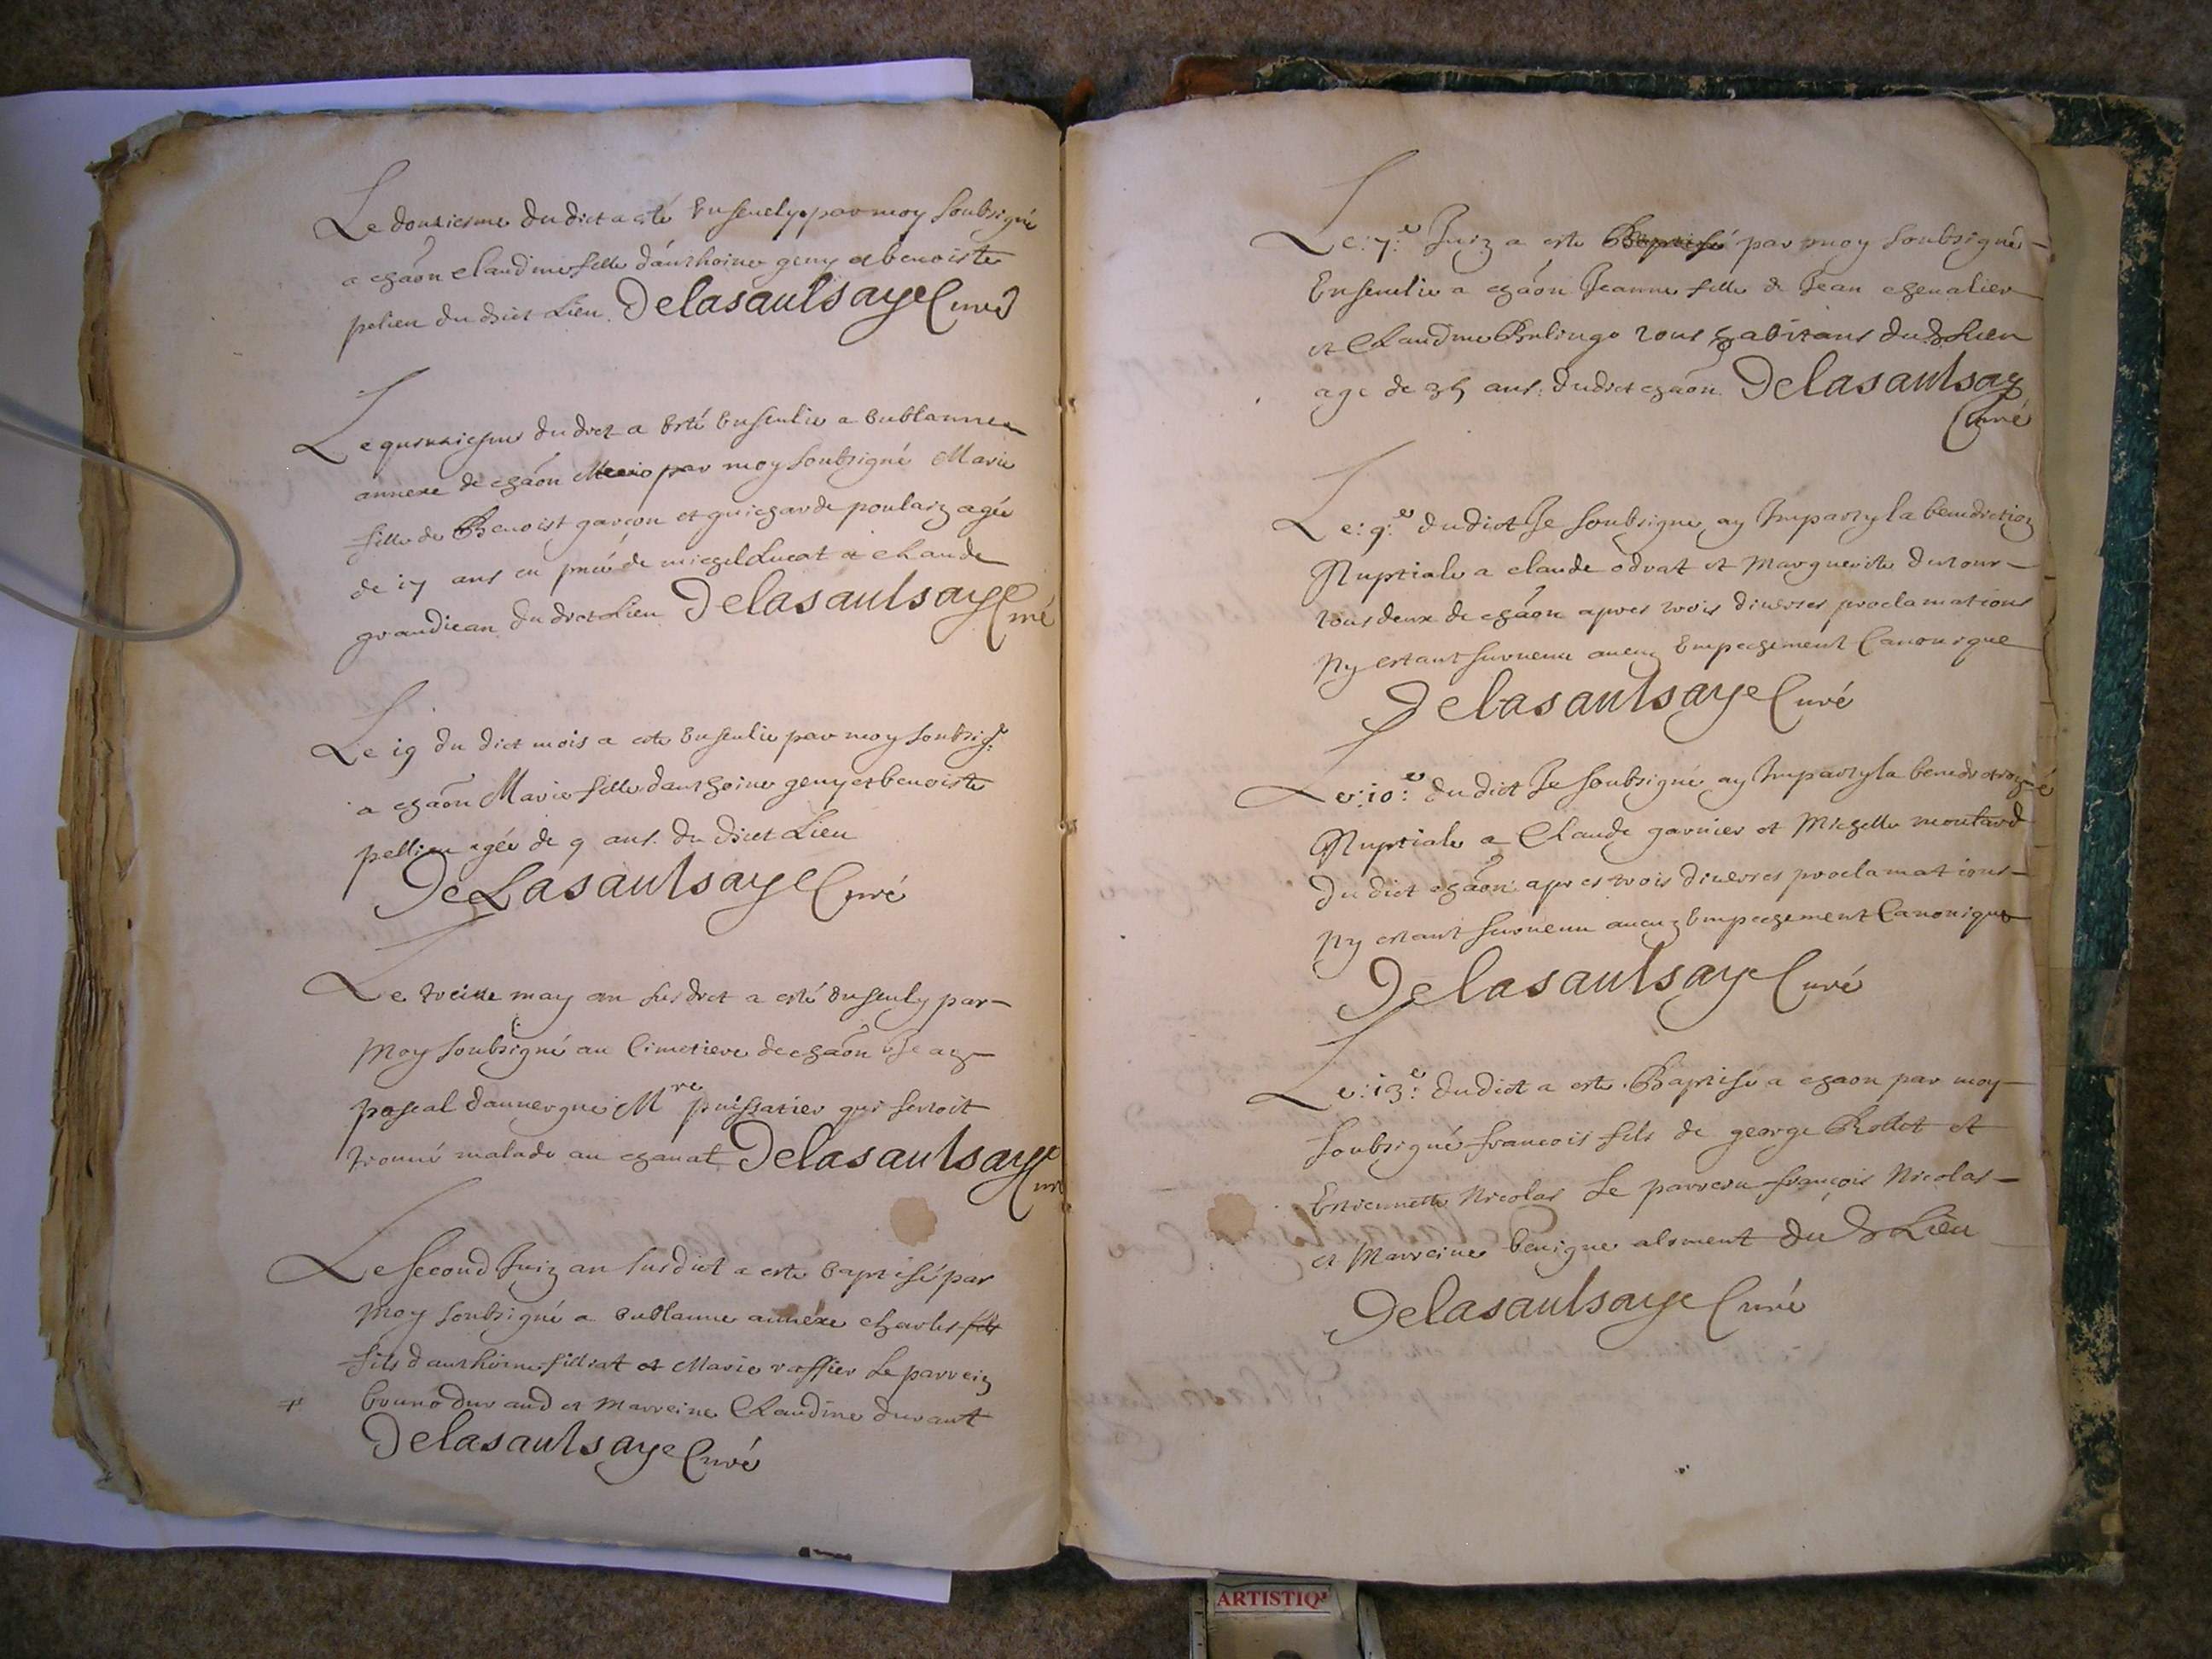 Le douziesme du dict a esté Ensevely par moy soubsigné
a chaon Claudine fille d'anthoine geny et benoiste
pelien du dict Lieu Delasaulsaye Curé
Le quinziesme du dict a Esté Ensevelie a Bublanne
annexe de chaon par moy soubsigné Marie
fille de Benoist garçon et guicharde poulain agée
de 17 ans en pnce de michel Lucat et Claude
grandiean du dict Lieu Delasaulsaye Curé
Le 19 du dict mois a esté Ensevelie par moy soubsig.é
a chaon Marie fille d'anthoine geny et benoiste
pellien agée de 9 ans. du dict Lieu
DeLasaulsaye Curé
Le treize may an susdict a esté Ensevely par
Moy soubsigné au Cimetiere de chaon
pascal d'auvergne M.re puissatier qui
trouvé malade au chanat Delasaulsaye
Curé
Le second Juin an susdict a esté baptisé par
Moy soubsigné a Bublanne annexe charles fils
fils d'anthoine filliat et Marie raffier Le parrein
bruno durand et Marreine Claudine durant
Delasaulsaye Curé
Le :7:e Juin a esté Baptisé par moy soubsigné
Ensevelie a chaon Jeanne fille de Jean chevalier
et Claudine tous habitans dud Lieu
age de 35 ans. dudict chaon Delasaulsay
Curé
Le :9:e dudict Je soubsigné ay Imparty la benediction
Nuptiale a claude odrat et Marguerite dutour
tous deux de chaon apres trois diverses proclamations
Ny estant survenu aucun Empechement Canonique
Delasaulsaye Curé
Le :10:e du dict Je soubsigné ay Imparty la benediction
Nuptiale a Claude garnier et Michelle montard
Du dict chaon apres trois diverses proclamations
Ny estant survenu aucun Empechement Canonique
Delasaulsaye Curé
Le :13:e dudict a esté Baptisé a chaon par moy
soubsigné francois fils de george Rollet et
Estiennette Nicolas Le parrein françois Nicolas
et Marreine benigne alement du d Lieu
Delasaulsaye Curé
ARTISTIQ